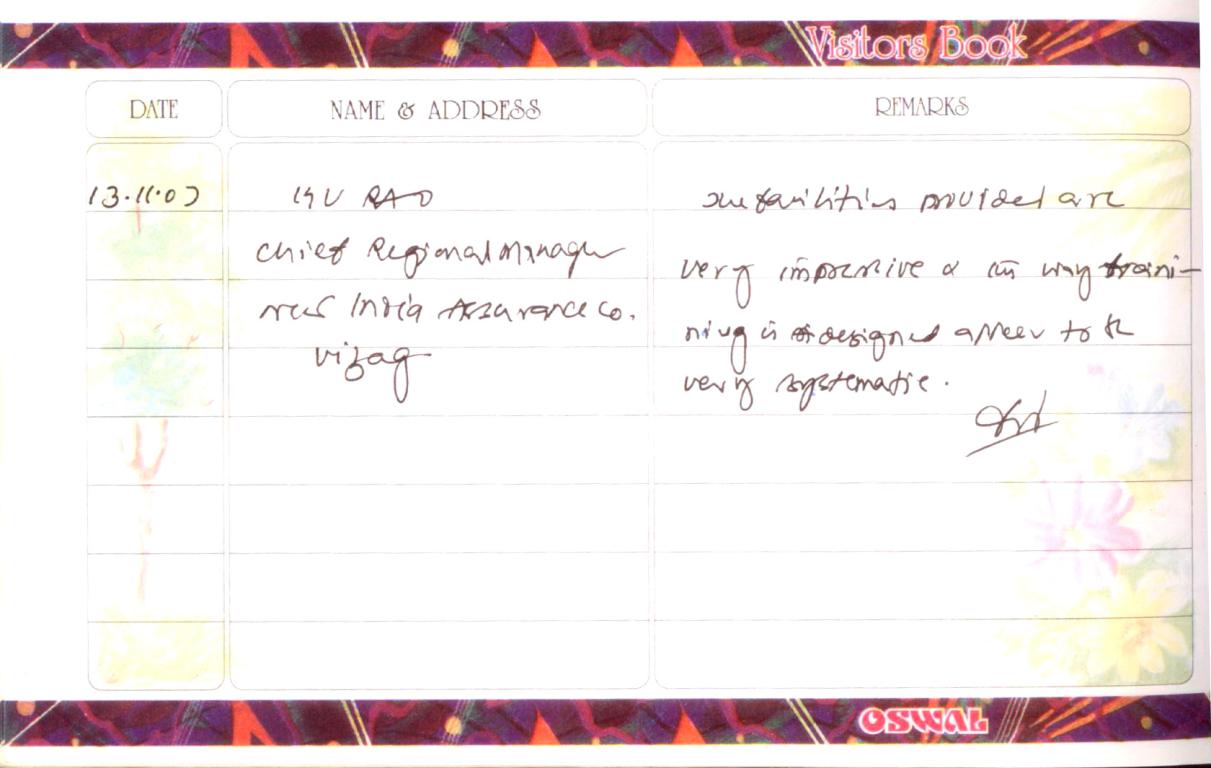 Visitors Book
DATE NAME & ADDRESS REMARKS
RAO
Chief Regional Manager
New India Assurance Co.
Vizag
The facilities provided are
very impressive & the way traini-
ning is designed appear to be
very systematic.
OSWAL